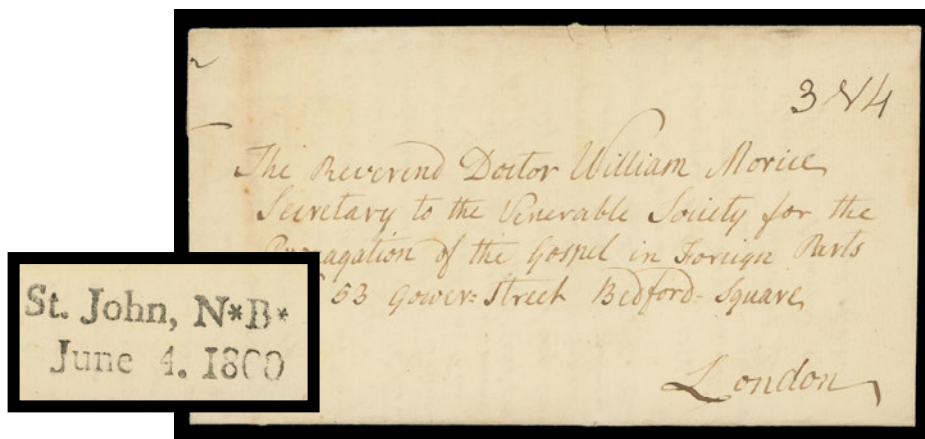 3 N 4
The Reverend Doctor William Morice
Secretary to the Venerable Society for the
Propagation of the Gospel in Foreign Parts
53 Gower-Street Bedford-Square
London
St. John, N*B*
June 4. 1800